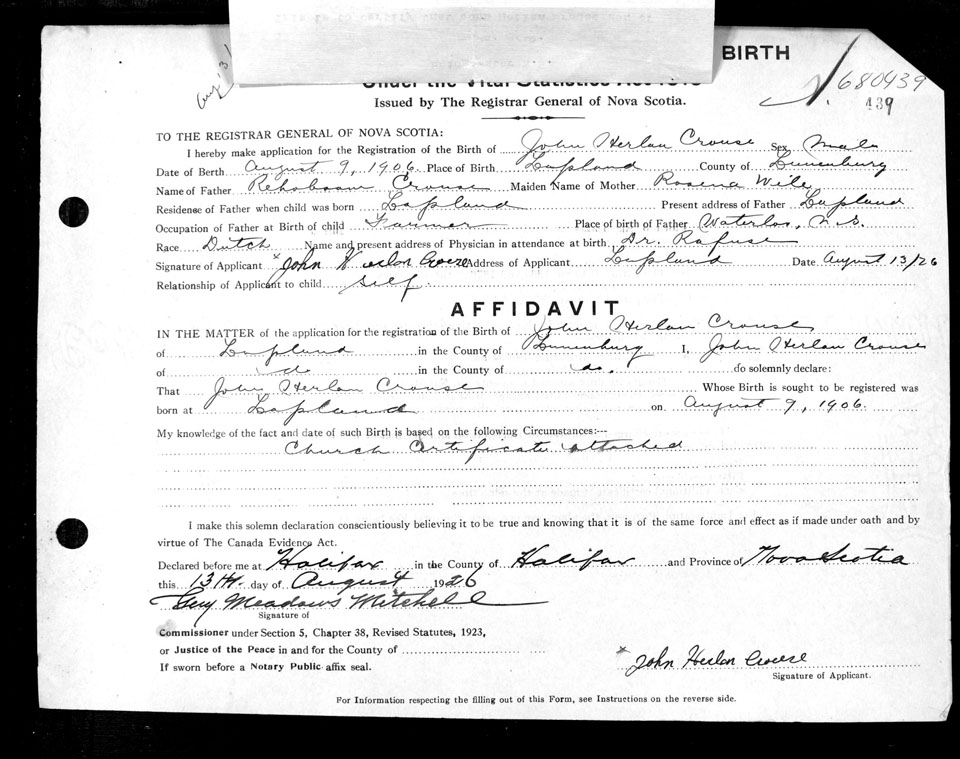 BIRTH
Aug '31
680439
439
Under the Vital Statistics Act
Issued by The Registrar General of Nova Scotia.
TO THE REGISTRAR GENERAL OF NOVA SCOTIA:
I hereby make application for the Registration of the Birth of John Herlan Crouse Sex Male
Date of Birth August 9, 1906 Place of Birth Lapland County of Lunenburg
Name of Father Rehoboam Crouse Maiden Name of Mother Rosena Wile
Residence of Father when child was born Lapland Present address of Father Lapland
Occupation of Father at Birth of child Farmer Place of birth of Father Waterloo, N.S.
Race Dutch Name and present address of Physician in attendance at birth Dr. Rafuse
Signature of Applicant x John Herlan Crouse Address of Applicant Lapland Date August 13/26
Relationship of Applicant to child Self.
AFFIDAVIT
IN THE MATTER of the application for the registration of the Birth of John Herlan Crouse
of Lapland in the County of Lunenburg I, John Herlan Crouse
of do in the County of do. do solemnly declare:
That John Herlan Crouse Whose Birth is sought to be registered was
born at Lapland on August 9, 1906.
My knowledge of the fact and date of such Birth is based on the following Circumstances:--
Church Certificate attached
I make this solemn declaration conscientiously believing it to be true and knowing that it is of the same force and effect as if made under oath and by
virtue of The Canada Evidence Act.
Declared before me at Halifax in the County of Halifax and Province of Nova Scotia
this 13th. day of August 1926
Guy Meadows Mitchell
Signature of
Commissioner under Section 5, Chapter 38, Revised Statutes, 1923,
or Justice of the Peace in and for the County of
If sworn before a Notary Public affix seal.
x John Herlan Crouse
Signature of Applicant.
For Information respecting the filling out of this Form, see Instructions on the reverse side.